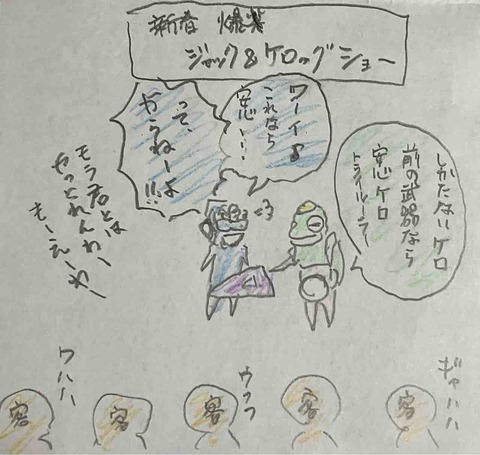 新春 爆笑
ジャック&ケロッグショー
しかたないケロ
前の武器なら
安心ケロ
トライルーラー
ワーイ♪
これなら
安心…
って、
モう君とは
やっとれんわー
もーえーわー
ギャハハ
ウフフ
ワハハ
客
客
客
客
客